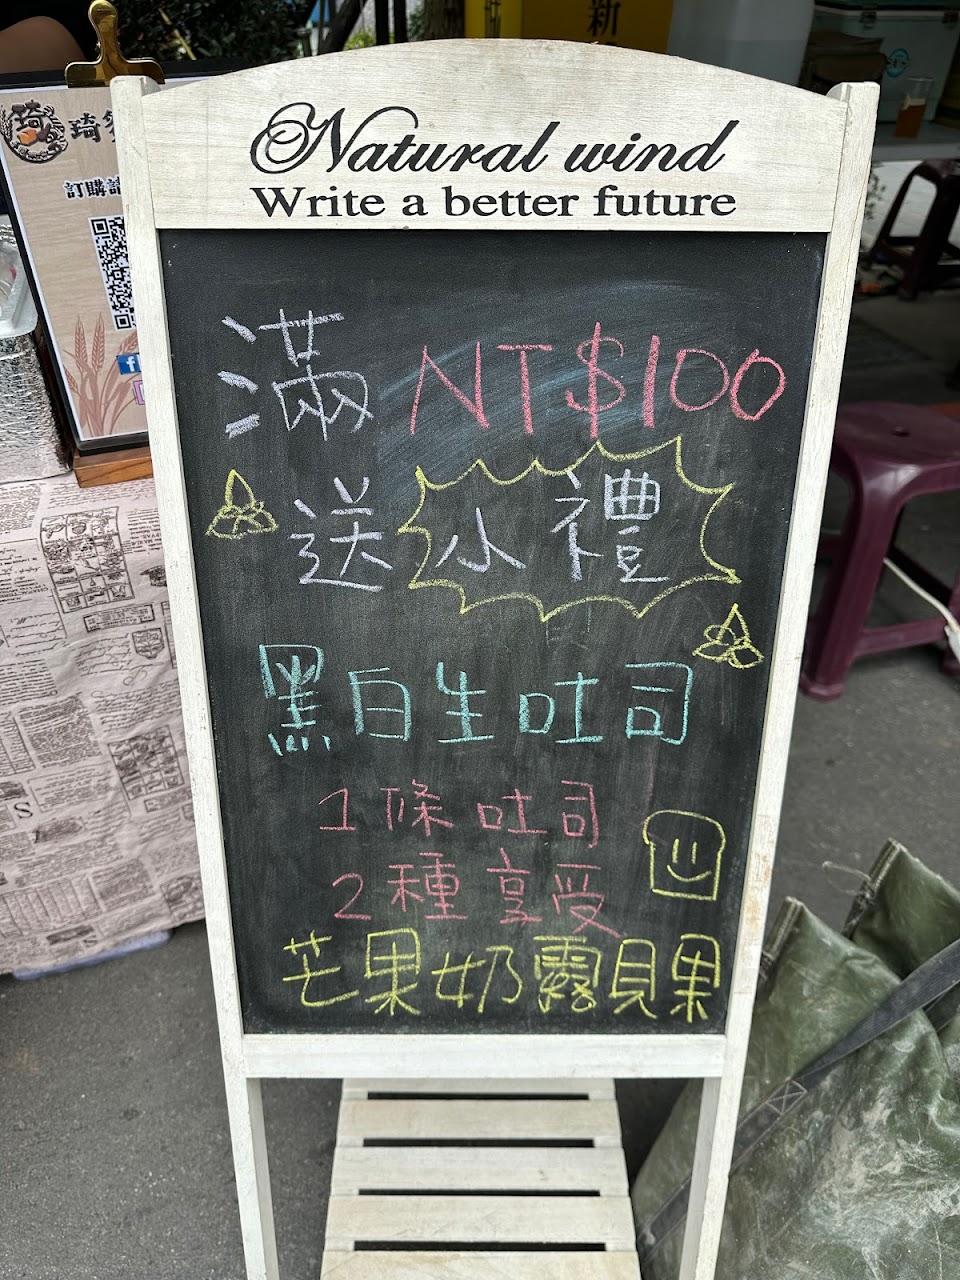 Natural wind
Write a better future
滿 NT$100
送 小禮
黑白生吐司
1條吐司
2種享受
芒果奶露貝果
琦
琦
訂購請
f
新